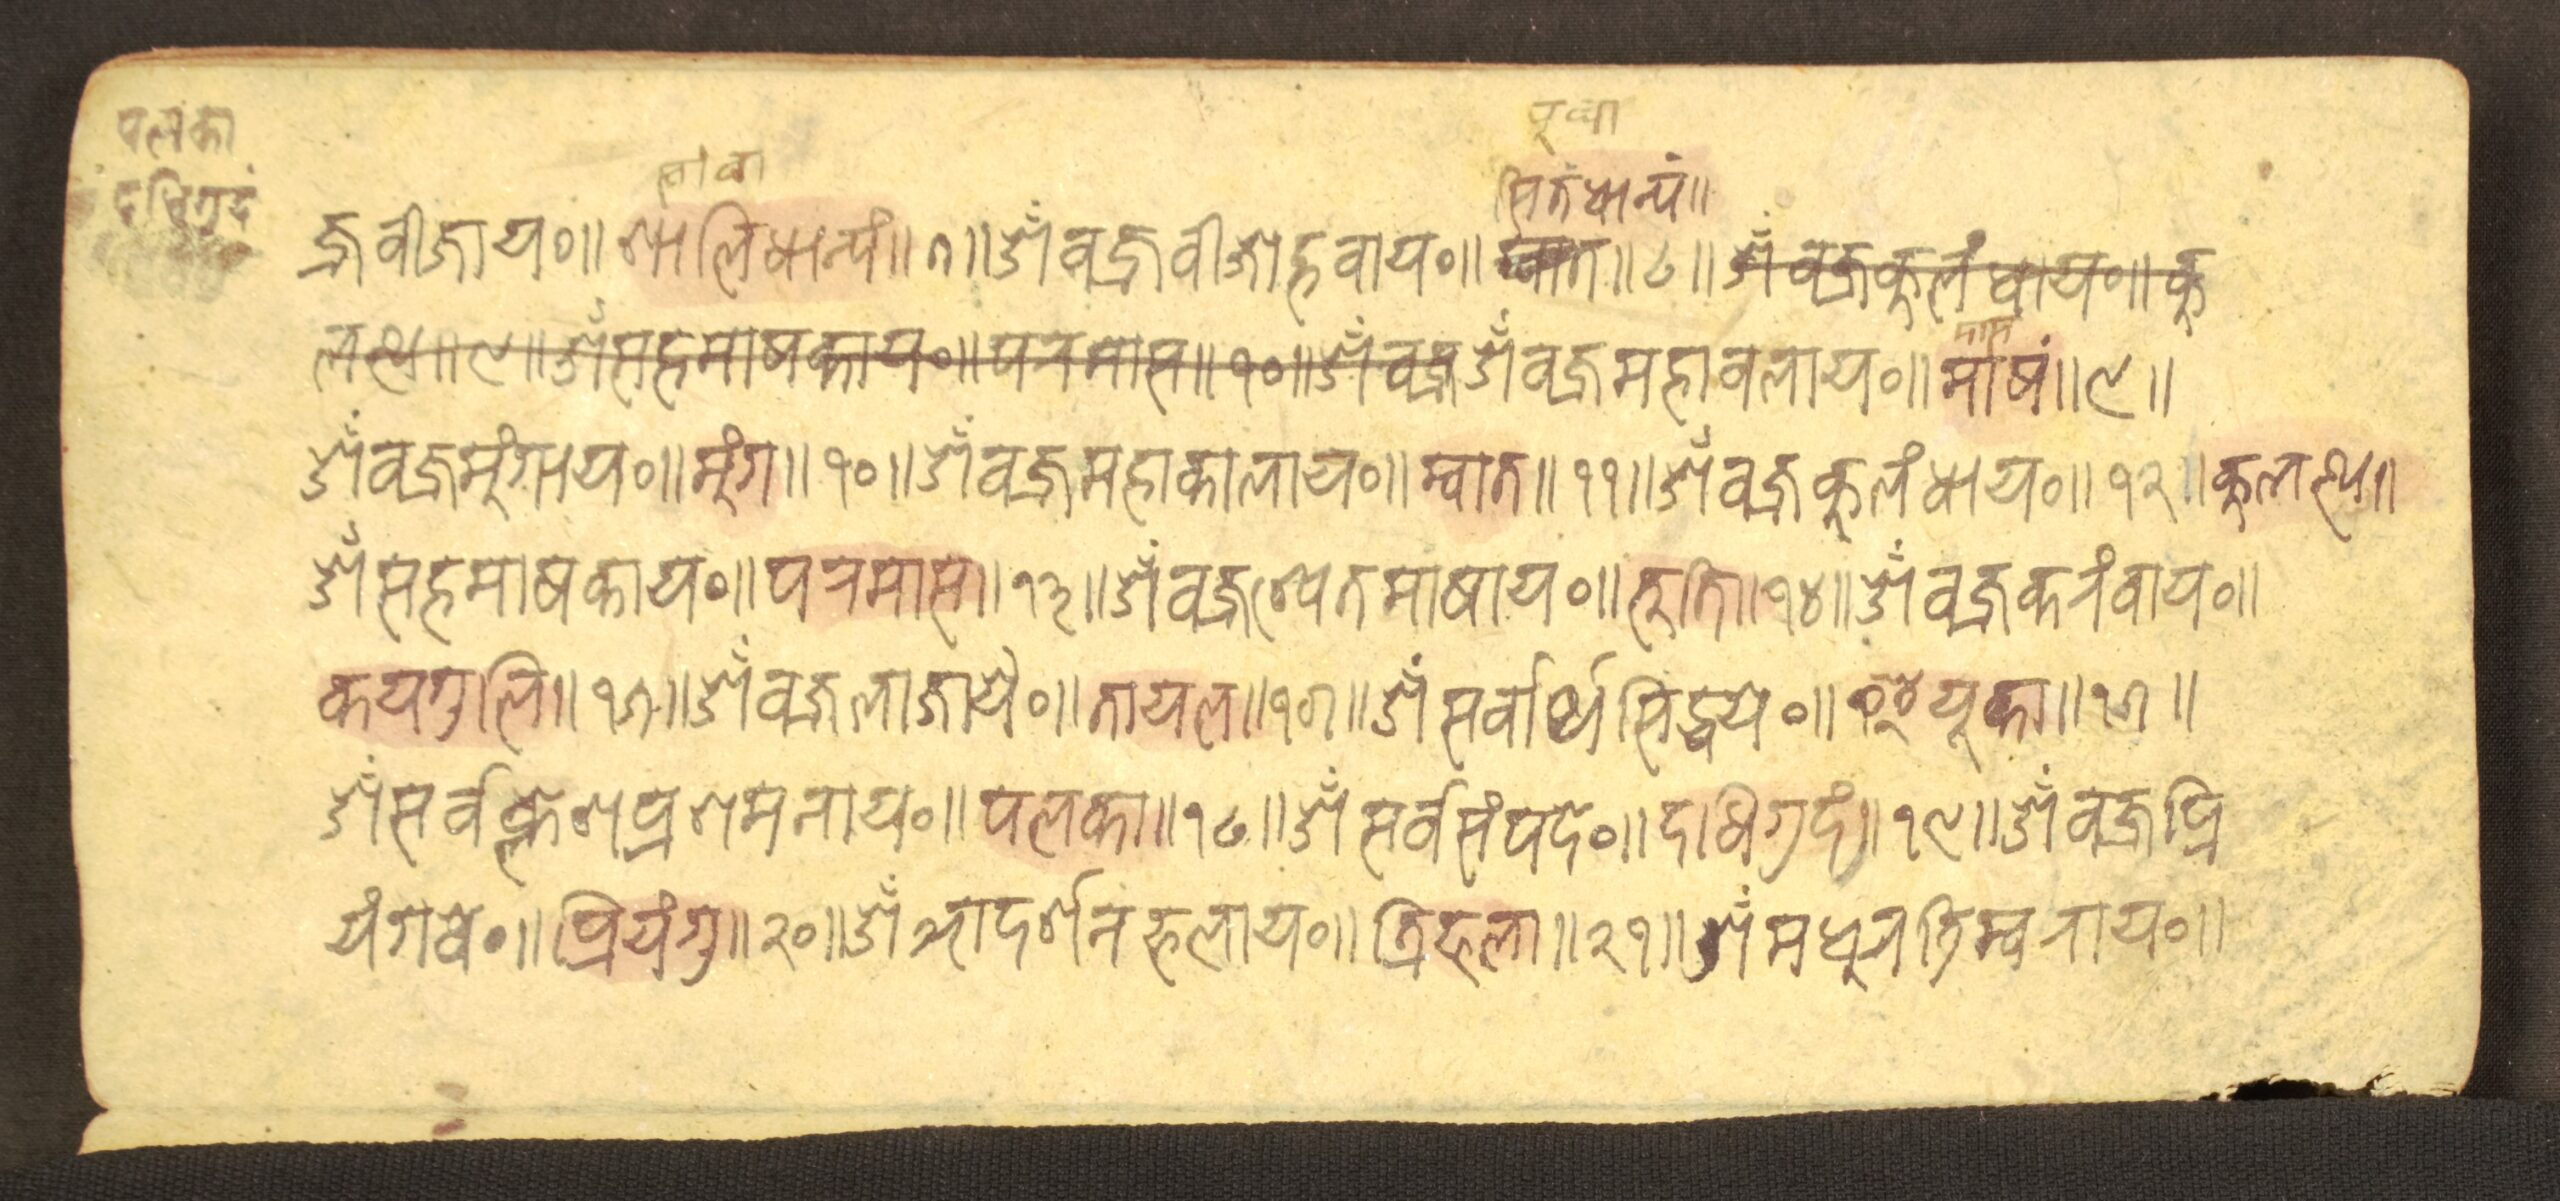 पलका
दधिगुदं
सितंधान्यं॥
ज्रवीजाय०॥ शालिधान्यं॥ ७॥ॐ वज्रवीजाह्नवाय०॥ म्वात॥ ८॥ ॐ वज्रकुलंधाय०॥ कु
लत्थ॥ ९॥ ॐ सहमाषकाय०॥ परमास॥ १०॥ ॐ वज्र ॐ वज्रमहावलाय०॥ माषं॥ ९॥
ॐ वज्रमुंगाय०॥ मुंग॥ १०॥ ॐ वज्रमहाकालाय०॥ म्वात॥ ११॥ ॐ वज्रकुलंधाय०॥ १२॥ कुलत्थ॥
ॐ सहमाषकाय०॥ परमास॥ १३॥ ॐ वज्रश्वेतमाषाय०॥ तुति॥ १४॥ ॐ वज्रकरंवाय०॥
कयगुलि॥ १५॥ ॐ वज्रलाजायै०॥ तायल॥ १६॥ ॐ सर्वार्थसिद्धये०॥ यूका॥ १७॥
ॐ सर्वक्लेशप्रशमनाय०॥ पलका॥ १८॥ ॐ सर्वसंपदे०॥ दधिगुदं॥ १९॥ ॐ वज्रप्रि
यंगवे०॥ प्रियंगु॥ २०॥ ॐ आदर्शनफलाय०॥ त्रिफला॥ २१॥ ॐ मधुरतिम्वराय०॥